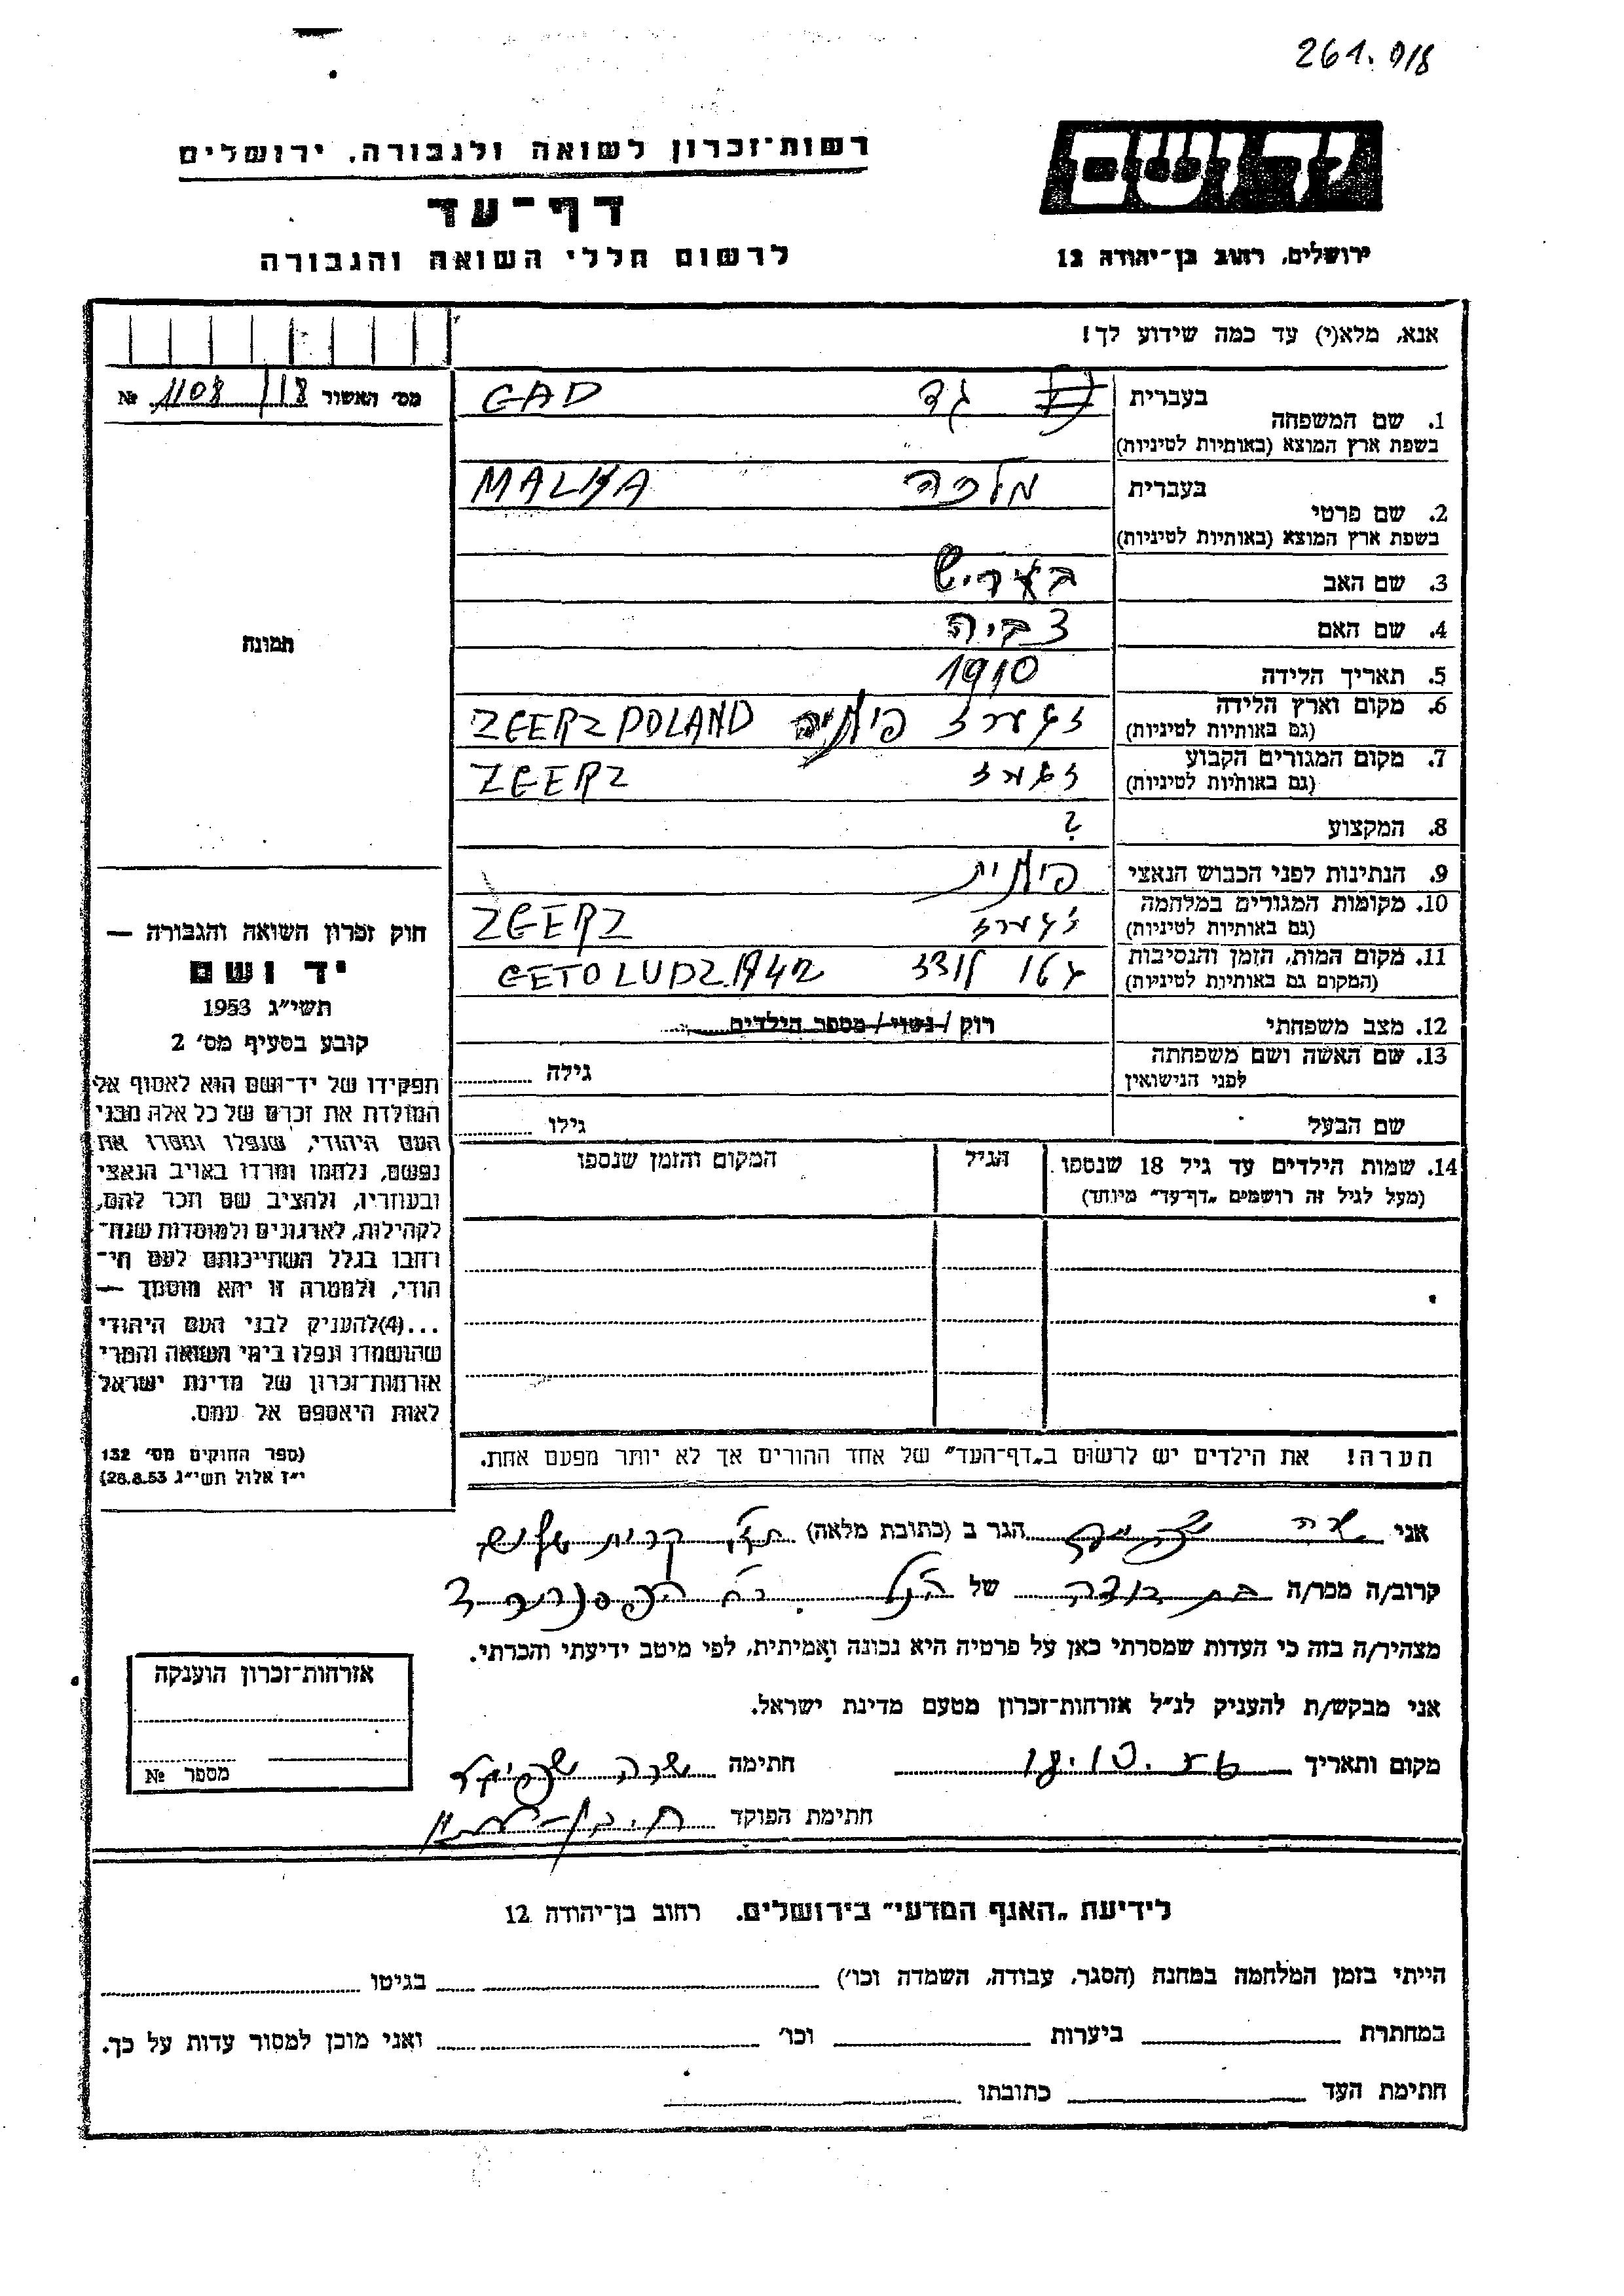 261. 018
רשות־זכרון לשואה ולגבורה, ירושלים
דף־עד
לרשום חללי השואה והגבורה
יד ושם
ירושלים, רחוב בן־יהודה 12
אנא, מלא(י) עד כמה שידוע לך!
מס׳ האשור 1108/18 №
1. שם המשפחה
בעברית גד GAD
בשפת ארץ המוצא (באותיות לטיניות)
2. שם פרטי
בעברית מלכה MALKA
בשפת ארץ המוצא (באותיות לטיניות)
3. שם האב בעריש
4. שם האם צביה
5. תאריך הלידה 1910
6. מקום וארץ הלידה זגערז פולניה ZGERZ POLAND
(גם באותיות לטיניות)
7. מקום המגורים הקבוע זגערז ZGERZ
(גם באותיות לטיניות)
8. המקצוע ?
9. הנתינות לפני הכבוש הנאצי פולנית
10. מקומות המגורים במלחמה זגערז ZGERZ
(גם באותיות לטיניות)
11. מקום המות, הזמן והנסיבות גטו לודז GETO LUDZ 1942
(המקום גם באותיות לטיניות)
12. מצב משפחתי רוק / נשוי / מספר הילדים
13. שם האשה ושם משפחתה גילה
לפני הנישואין
שם הבעל גילו
14. שמות הילדים עד גיל 18 שנספו הגיל המקום והזמן שנספו
(מעל לגיל זה רושמים „דף־עד״ מיוחד)
הערה! את הילדים יש לרשום ב„דף־העד״ של אחד ההורים אך לא יותר מפעם אחת.
תמונה
חוק זכרון השואה והגבורה —
יד ושם
תשי״ג 1953
קובע בסעיף מס׳ 2
תפקידו של יד־ושם הוא לאסוף אל
המולדת את זכרם של כל אלה מבני
העם היהודי, שנפלו ומסרו את
נפשם, נלחמו ומרדו באויב הנאצי
ובעוזריו, ולהציב שם וזכר להם,
לקהילות, לארגונים ולמוסדות שנח־
רבו בגלל השתייכותם לעם הי־
הודי, ולמטרה זו יהא מוסמך —
...(4)להעניק לבני העם היהודי
שהושמדו ונפלו בימי השואה והמרי
אזרחות־זכרון של מדינת ישראל
לאות היאספם אל עמם.
(ספר החוקים מס׳ 132
י״ז אלול תשי״ג 28.8.53)
אני שרה הגר ב (כתובת מלאה) קרית שלום
קרוב/ה מכר/ה בת דודה של הנ״ל
מצהיר/ה בזה כי העדות שמסרתי כאן על פרטיה היא נכונה ואמיתית, לפי מיטב ידיעתי והכרתי.
אני מבקש/ת להעניק לנ״ל אזרחות־זכרון מטעם מדינת ישראל.
מקום ותאריך חתימה שרה
חתימת הפוקד
אזרחות־זכרון הוענקה
מספר №
לידיעת „האגף המדעי״ בירושלים, רחוב בן־יהודה 12
הייתי בזמן המלחמה במחנה (הסגר, עבודה, השמדה וכו׳) בגיטו
במחתרת ביערות וכו׳ ואני מוכן למסור עדות על כך.
חתימת העד כתובתו